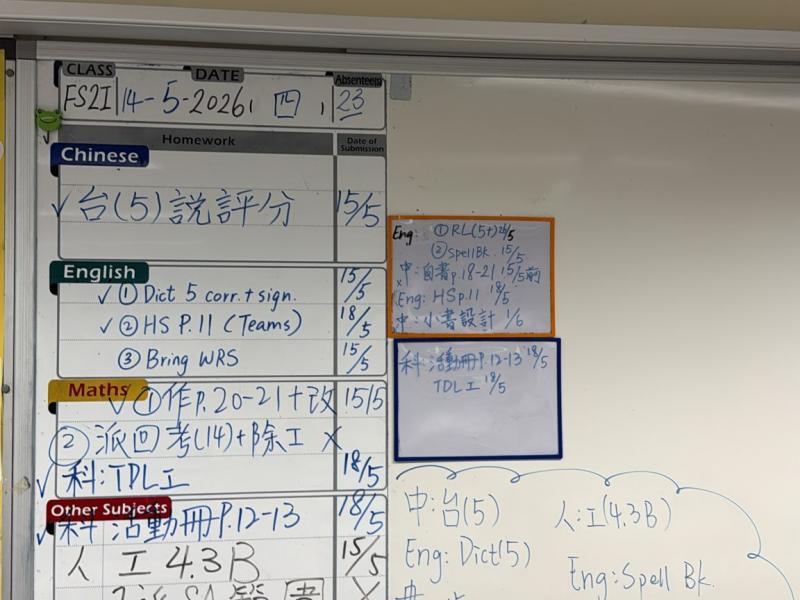 CLASS DATE Absentees
FS2I 14-5-2026, 四, 23
Homework Date of Submission
Chinese
✓ 台(5) 説評分 15/5
English
✓ ① Dict 5 corr. + sign. 15/5
✓ ② HS P.11 (Teams) 18/5
③ Bring WRS 15/5
Maths
✓ ① 作P.20-21+改 15/5
② 派回考(14)+除工 X
✓ 科:TDL工 18/5
Other Subjects
✓ 科 活動冊P.12-13 18/5
人 工4.3B 15/5
Eng: ① RL(5+) /5
② Spell Bk. 15/5
中:自書p.18-21 15/5前
x Eng: HS p.11 18/5
中:小書設計 1/6
科 活動冊P.12-13 18/5
TDL工 18/5
中:台(5)
人:工(4.3B)
Eng: Dict(5)
Eng: Spell Bk.